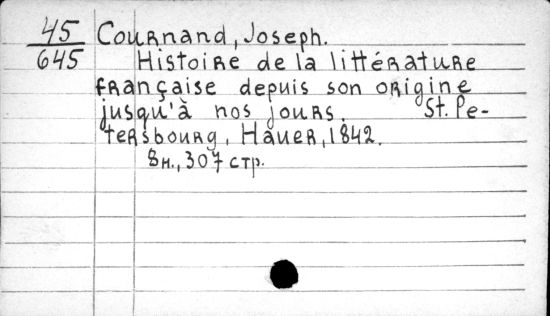 45
645
Cournand, Joseph.
Histoire de la littérature
française depuis son origine
jusqu'à nos jours. St. Pe-
tersbourg, Hauer, 1842.
8н., 307 стр.